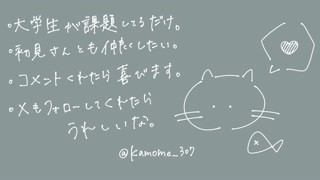 ・大学生が課題してるだけ。
・初見さんとも仲良くしたい。
・コメントくれたら喜びます。
・Xもフォローしてくれたら
うれしいな。
@kamome_307